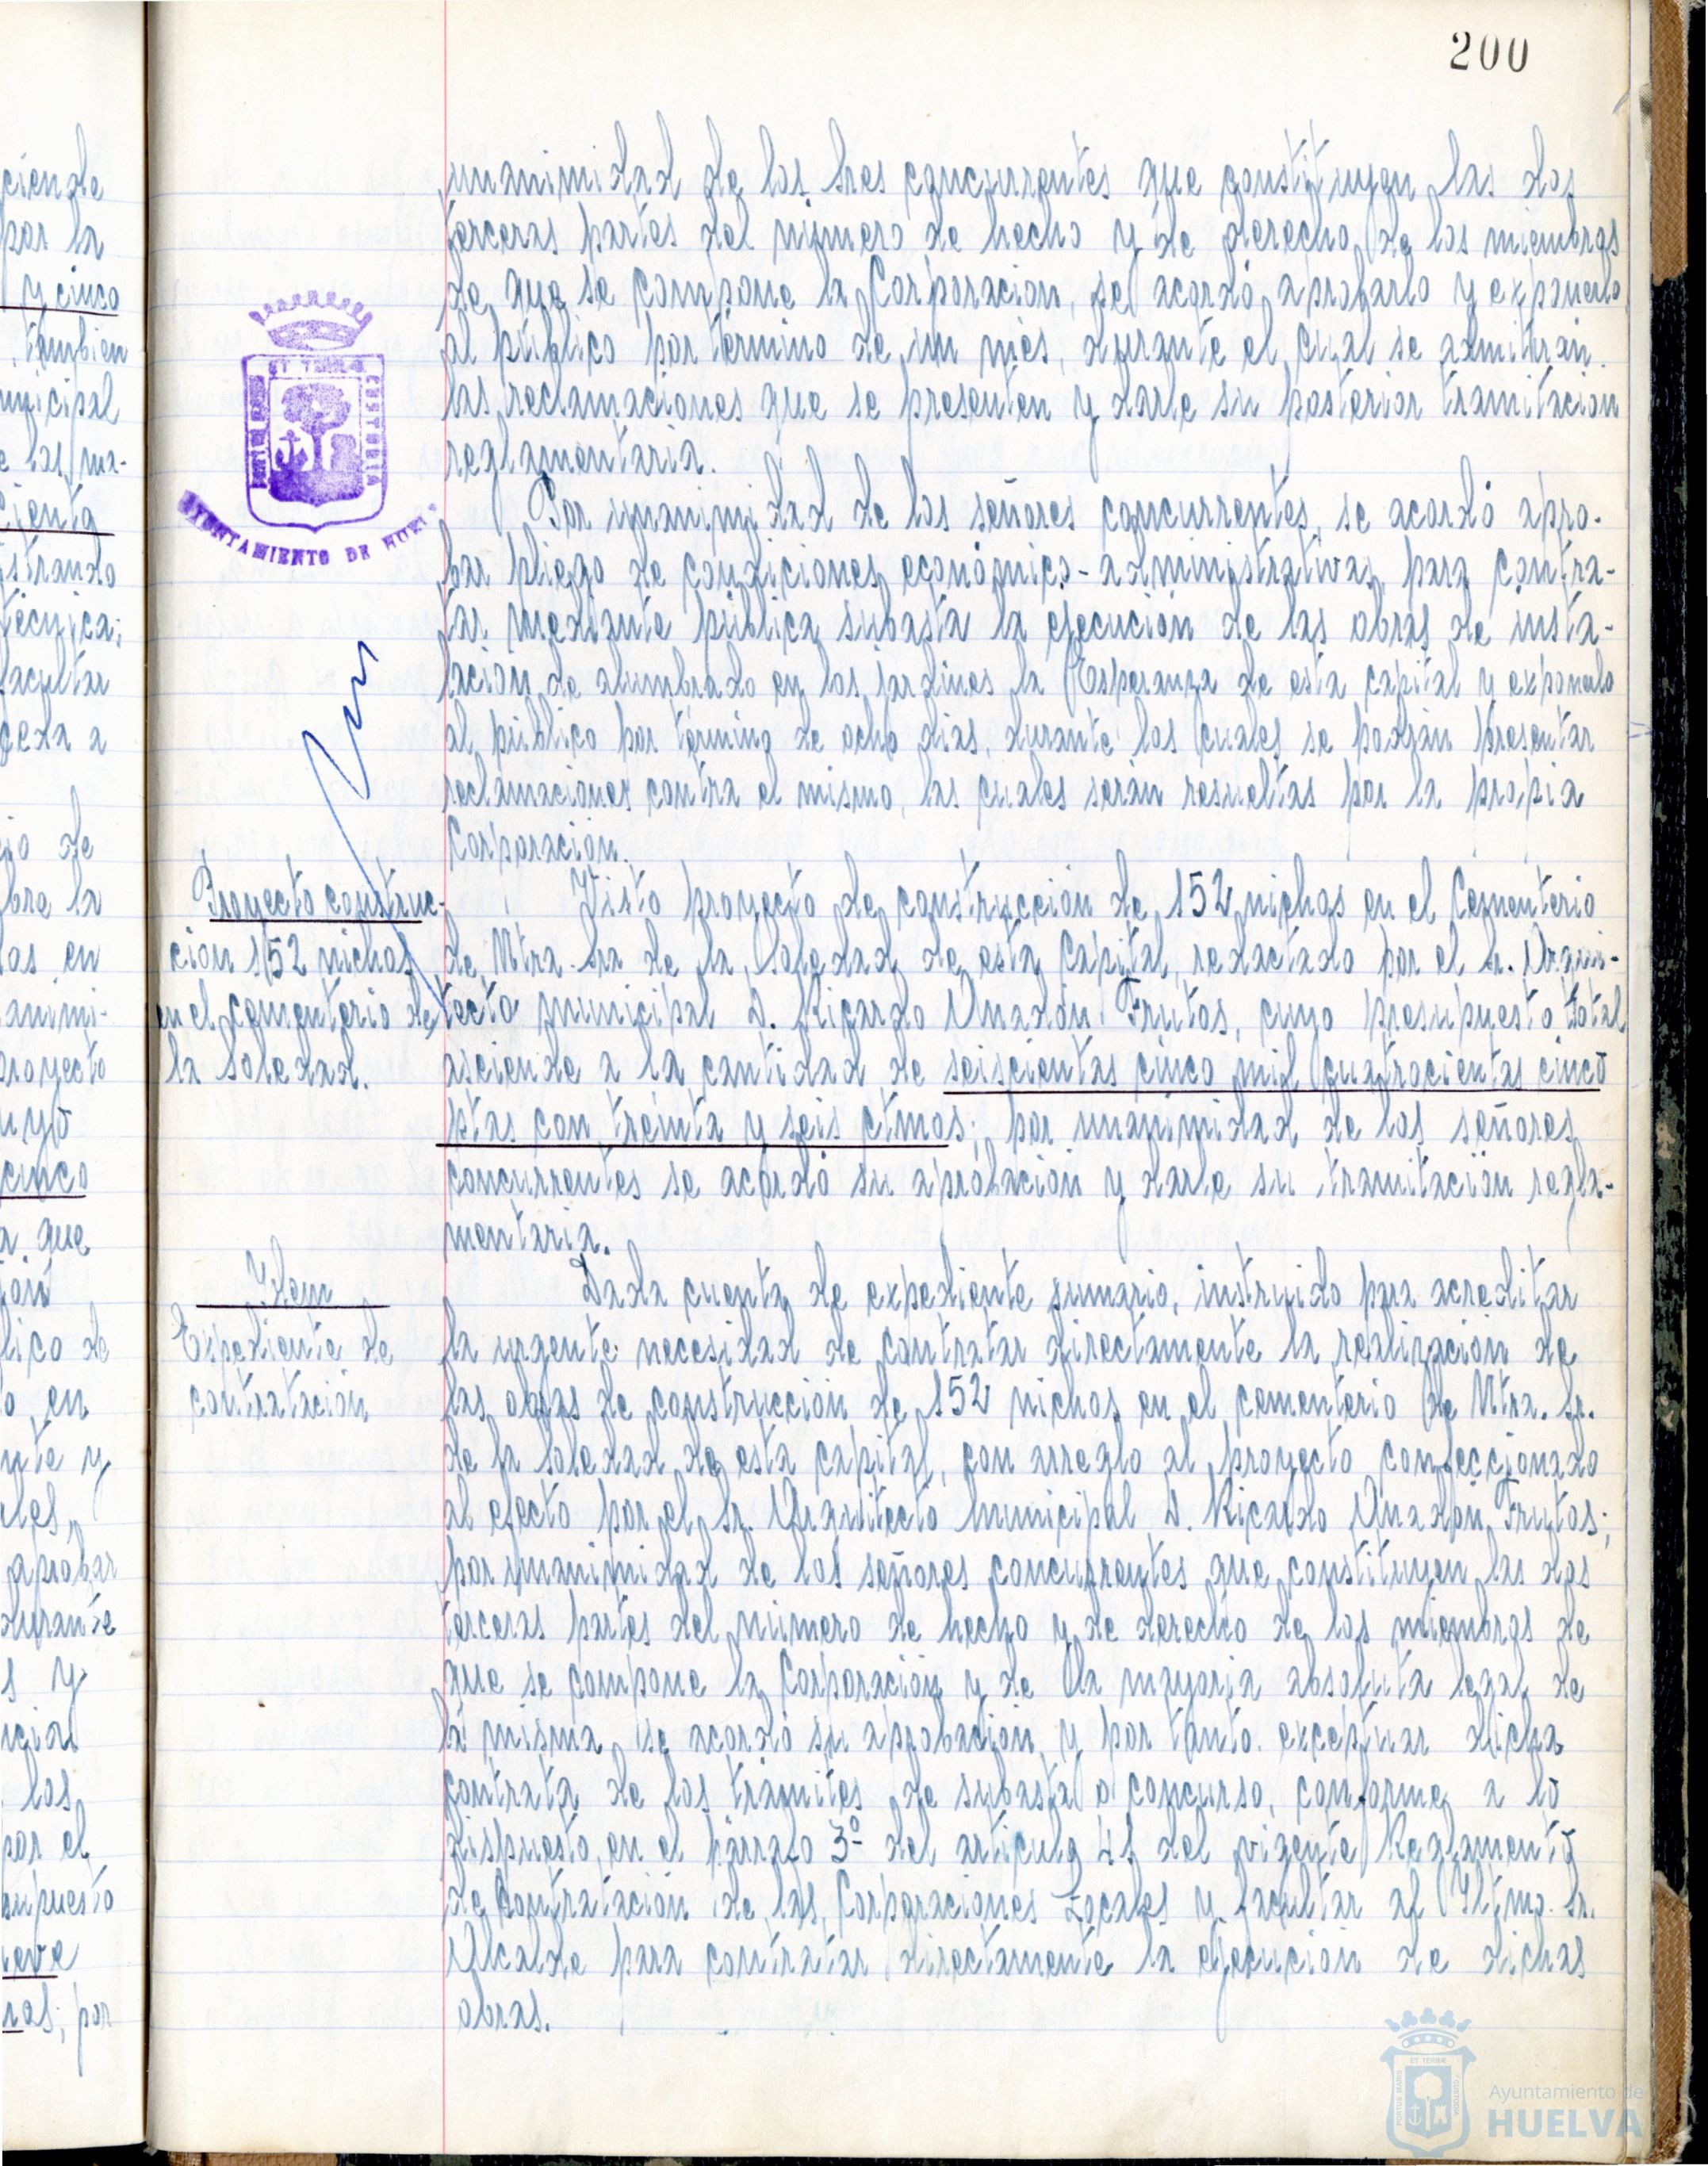 200
unanimidad de los Sres concurrentes que constituyen las dos
terceras partes del número de hecho y de derecho de los miembros
de que se compone la Corporación, se acordó aprobarlo y exponerlo
al público por término de un mes, durante el cual se admitirán
las reclamaciones que se presenten y darle su posterior tramitación
reglamentaria.
Por unanimidad de los señores concurrentes, se acordó apro-
bar pliego de condiciones económico-administrativas para contra-
tar mediante pública subasta la ejecución de las obras de insta-
lación de alumbrado en los jardines la Esperanza de esta capital y exponerlo
al público por término de ocho días, durante los cuales se podrán presentar
reclamaciones contra el mismo, las cuales serán resueltas por la propia
Corporación.
AYUNTAMIENTO DE HUELVA
Proyecto construc-
ción 152 nichos
en el cementerio de
la Soledad.
Visto proyecto de construcción de 152 nichos en el Cementerio
de Ntra. Sra de la Soledad de esta Capital, redactado por el Sr. Arqui-
tecto municipal D. Ricardo Anadón Frutos, cuyo presupuesto total
asciende a la cantidad de seiscientas cinco mil cuatrocientas cinco
ptas con treinta y seis ctmos; por unanimidad de los señores
concurrentes se acordó su aprobación y darle su tramitación regla-
mentaria.
Idem
Expediente de
contratación
Dada cuenta de expediente sumario, instruido para acreditar
la urgente necesidad de contratar directamente la realización de
las obras de construcción de 152 nichos en el cementerio de Ntra. Sr.
de la Soledad de esta capital, con arreglo al proyecto confeccionado
al efecto por el Sr. Arquitecto Municipal D. Ricardo Anadón Frutos;
por unanimidad de los señores concurrentes que constituyen las dos
terceras partes del número de hecho y de derecho de los miembros de
que se compone la Corporación y de la mayoría absoluta legal de
la misma, se acordó su aprobación y por tanto exceptuar dicha
contrata de los trámites de subasta o concurso, conforme a lo
dispuesto en el párrafo 3º del artículo 41 del vigente Reglamento
de Contratación de las Corporaciones Locales y facultar al Iltmo. Sr.
Alcalde para contratar directamente la ejecución de dichas
obras.
Ayuntamiento de
HUELVA